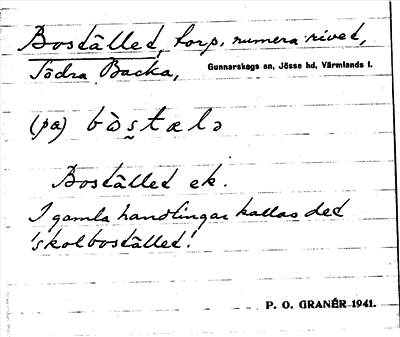 Bostället, torp, numera rivet,
Södra Backa, Gunnarskogs sn, Jösse hd, Värmlands l.
(på) bòs̬tælə
Bostället ek.
I gamla handlingar kallas det
'skolbostället'.
P. O. GRANÉR 1941.